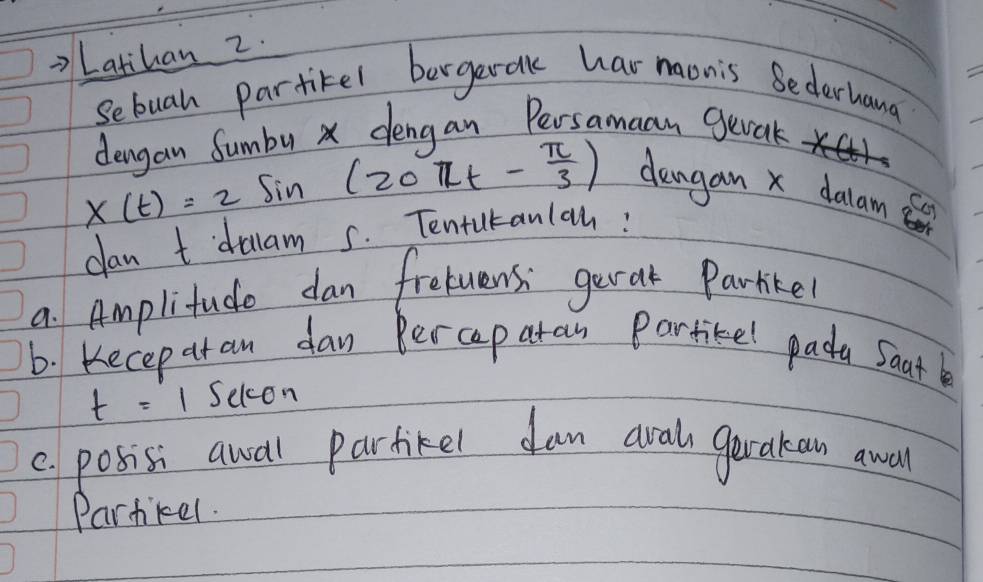 → Latihan 2.
Sebuah partikel bergerak harmonis Sederhana
dengan Sumbu x dengan Persamaan gerak
x(t) = 2 Sin (20 πt - π/3) dengan x dalam
dan t dalam s. Tentukanlah :
a. Amplitudo dan frekuensi gerak Partikel
b. Kecepatan dan Percepatan Partikel pada Saat
t = 1 Sekon
c. posisi awal partikel dan arah gerakan awal
Partikel.